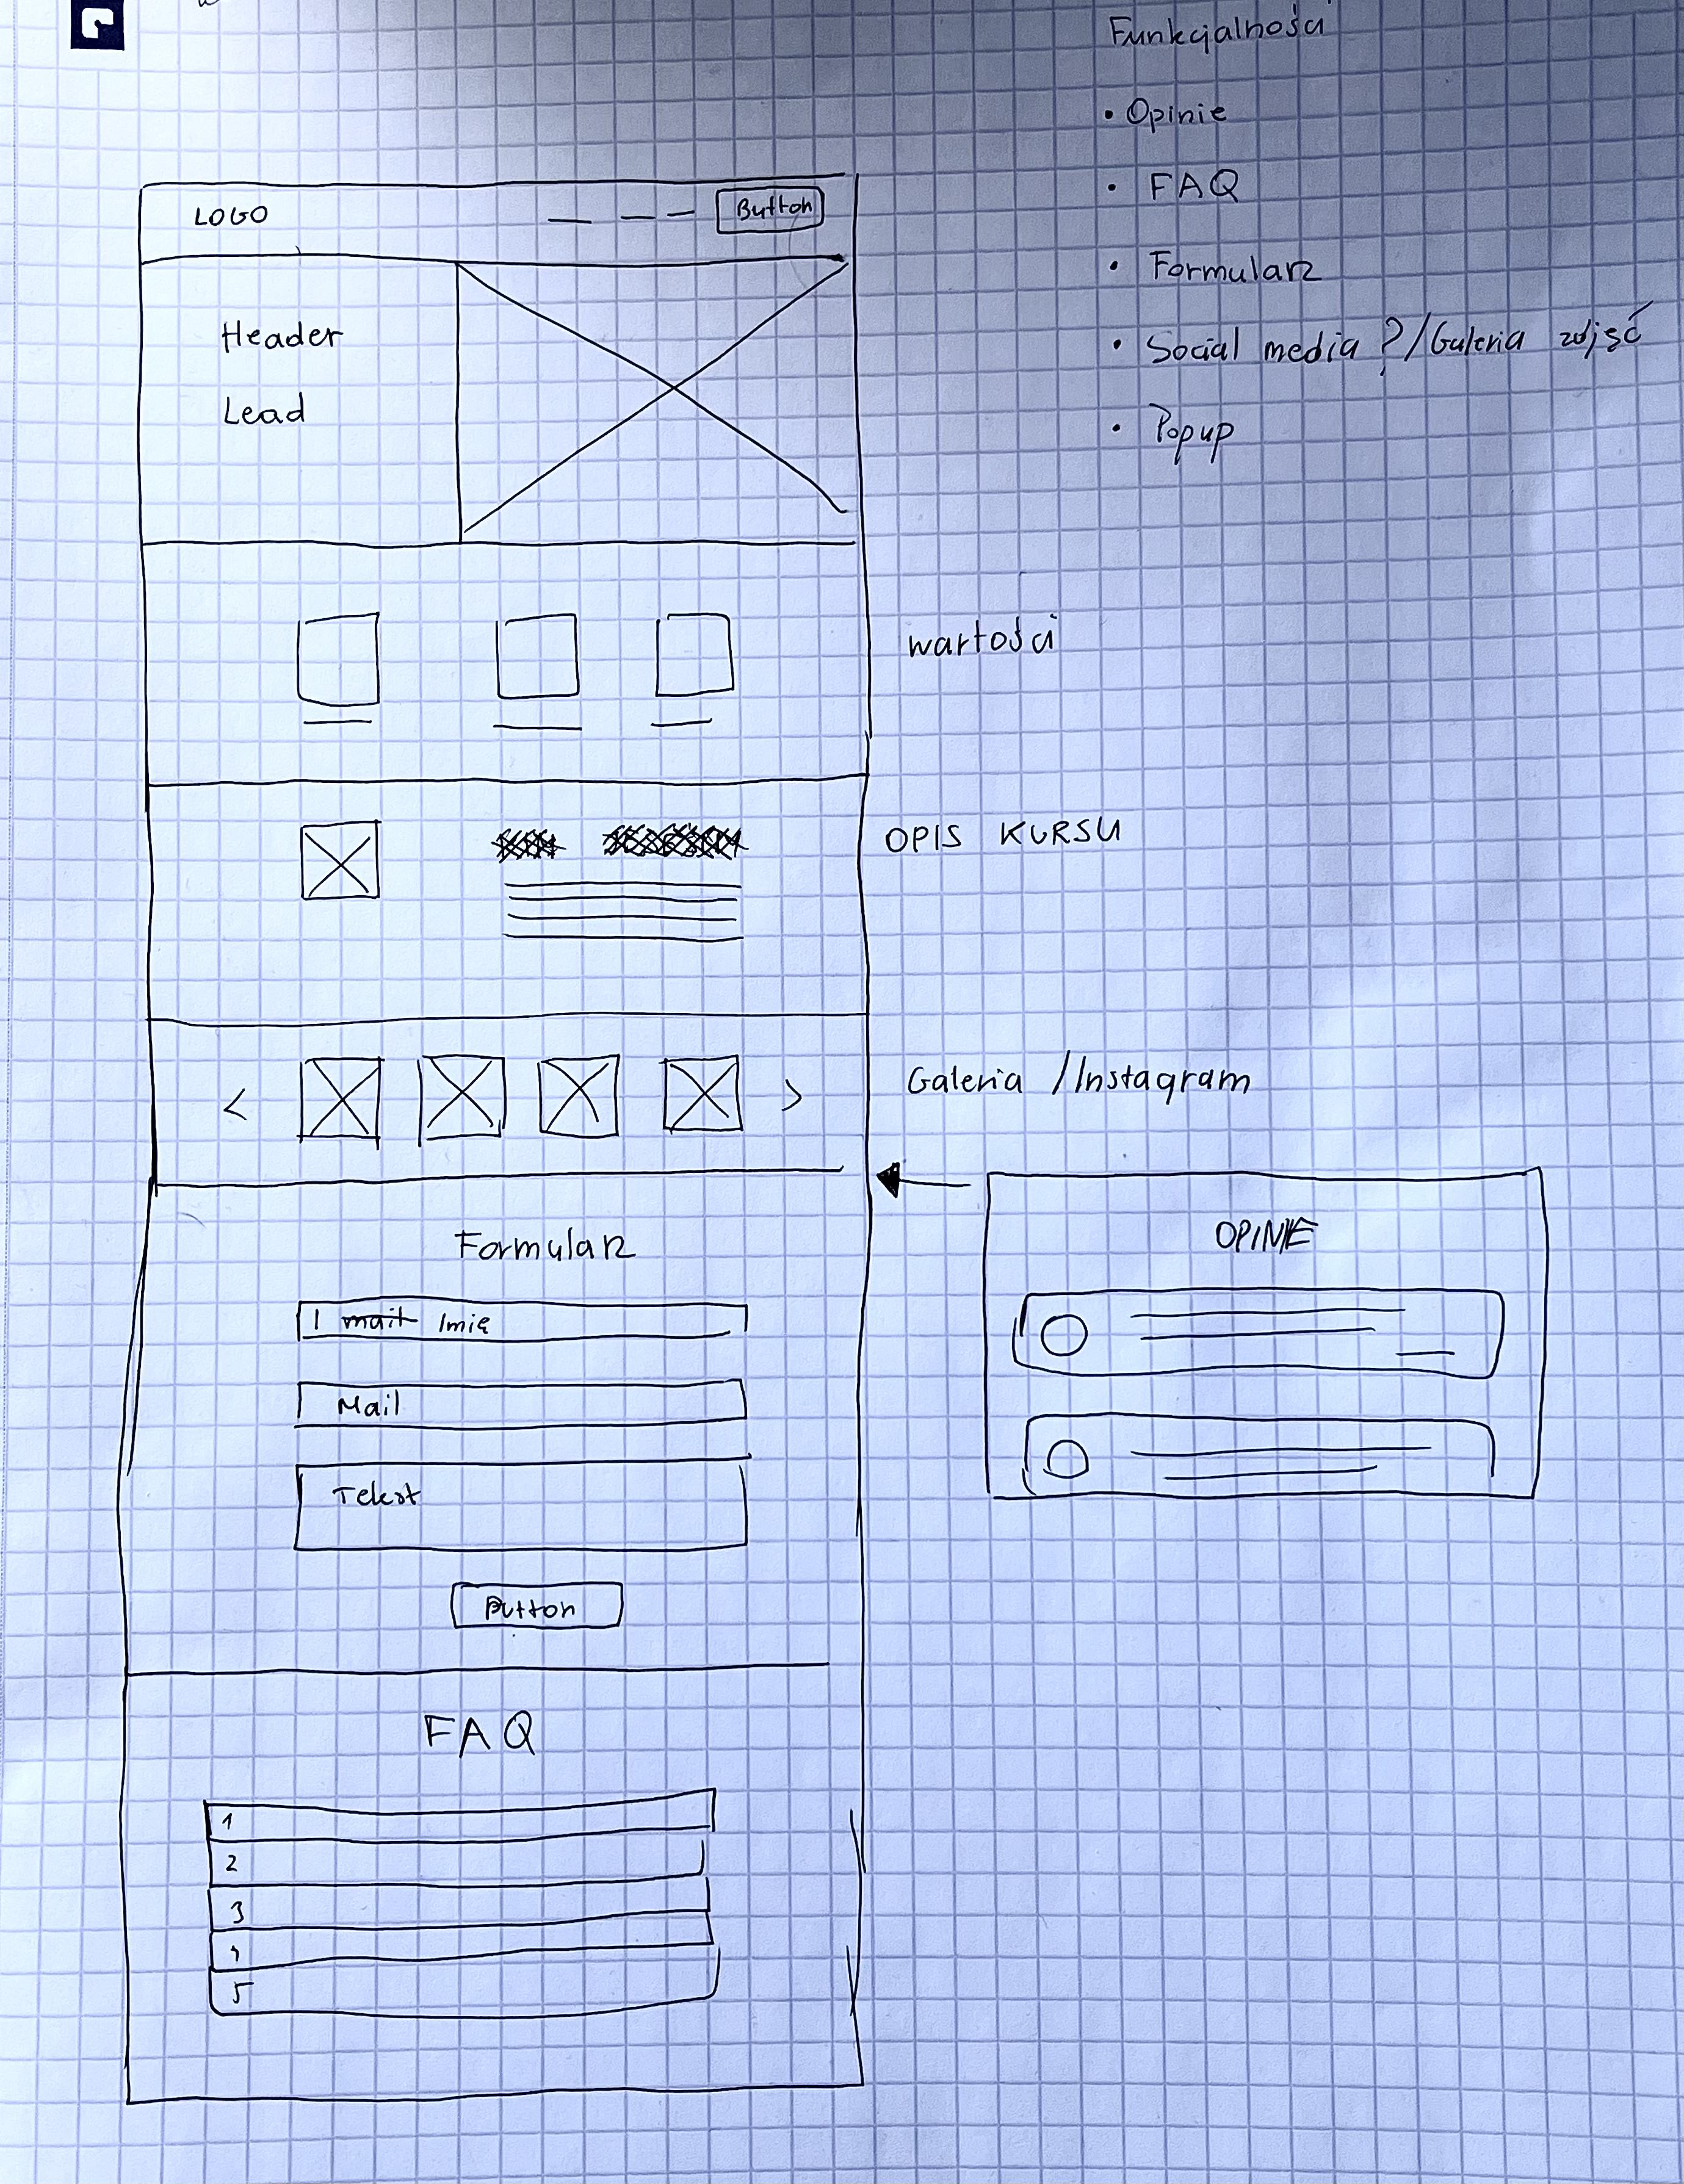 Funkcjalności
• Opinie
• FAQ
• Formularz
• Social media ?/Galeria zdjęć
• Popup
LOGO
Button
Header
Lead
wartości
OPIS KURSU
< >
Galeria /Instagram
Formularz
mail Imię
Mail
Tekst
Button
OPINIE
FAQ
1
2
3
4
5